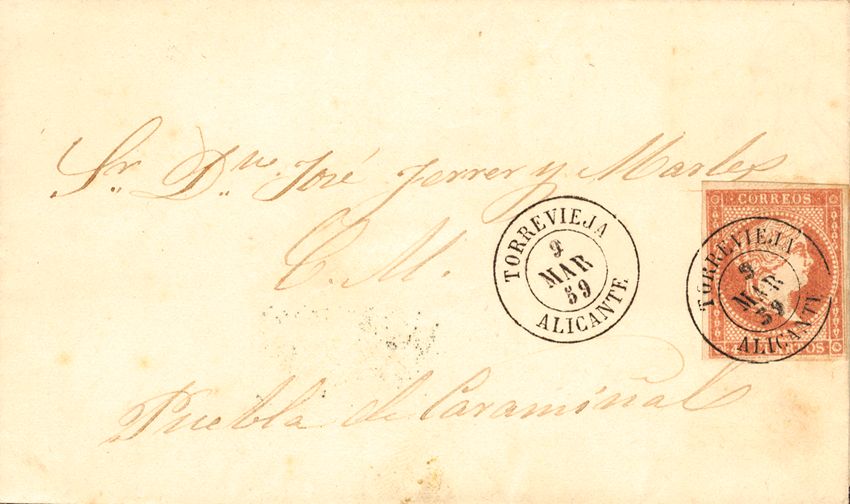 Sr. Dn. José Ferrer y
C. M.
Puebla de Caramiñal
TORREVIEJA
9
MAR
59
ALICANTE
CORREOS
TORREVIEJA
9
MAR
59
ALICANTE